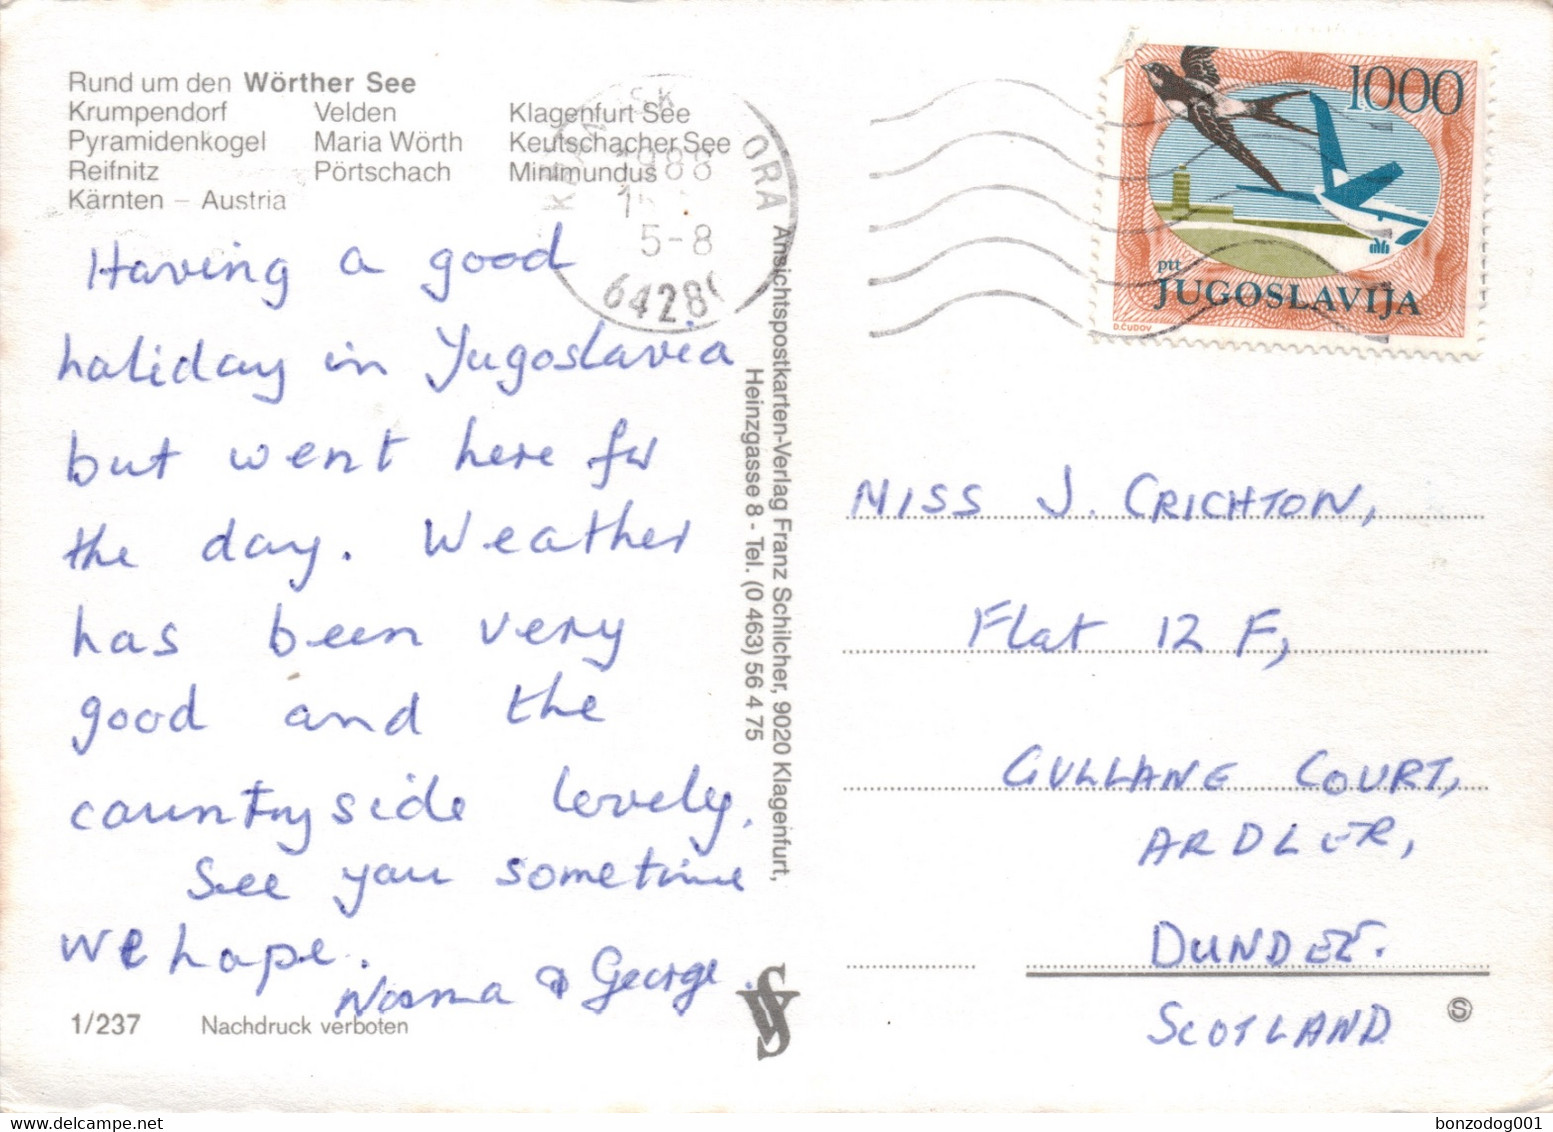 Rund um den Wörther See
Krumpendorf Velden Klagenfurt See
Pyramidenkogel Maria Wörth Keutschacher See
Reifnitz Pörtschach Minimundus
Kärnten – Austria
Having a good
holiday in Yugoslavia
but went here for
the day. Weather
has been very
good and the
countryside lovely.
See you sometime
we hope.
Norma & George.
1/237 Nachdruck verboten
Ansichtspostkarten-Verlag Franz Schilcher, 9020 Klagenfurt,
Heinzgasse 8 - Tel. (0 463) 56 4 75
ORA
1988
5-8
6428
1000
ptt
JUGOSLAVIJA
D.ČUDOV
MISS J. CRICHTON,
Flat 12 F,
GULLANE COURT,
ARDLER,
DUNDEE.
SCOTLAND
S
bonzodog001